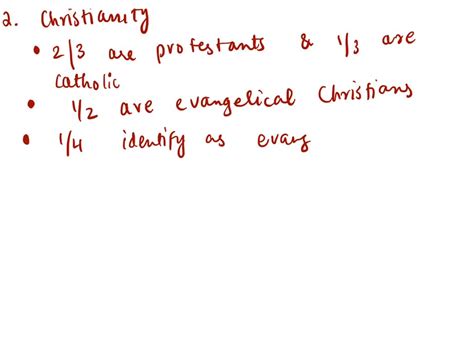 2. Christianity
• 2/3 are protestants & 1/3 are
catholic
• 1/2 are evangelical Christians
• 1/4 identify as evang